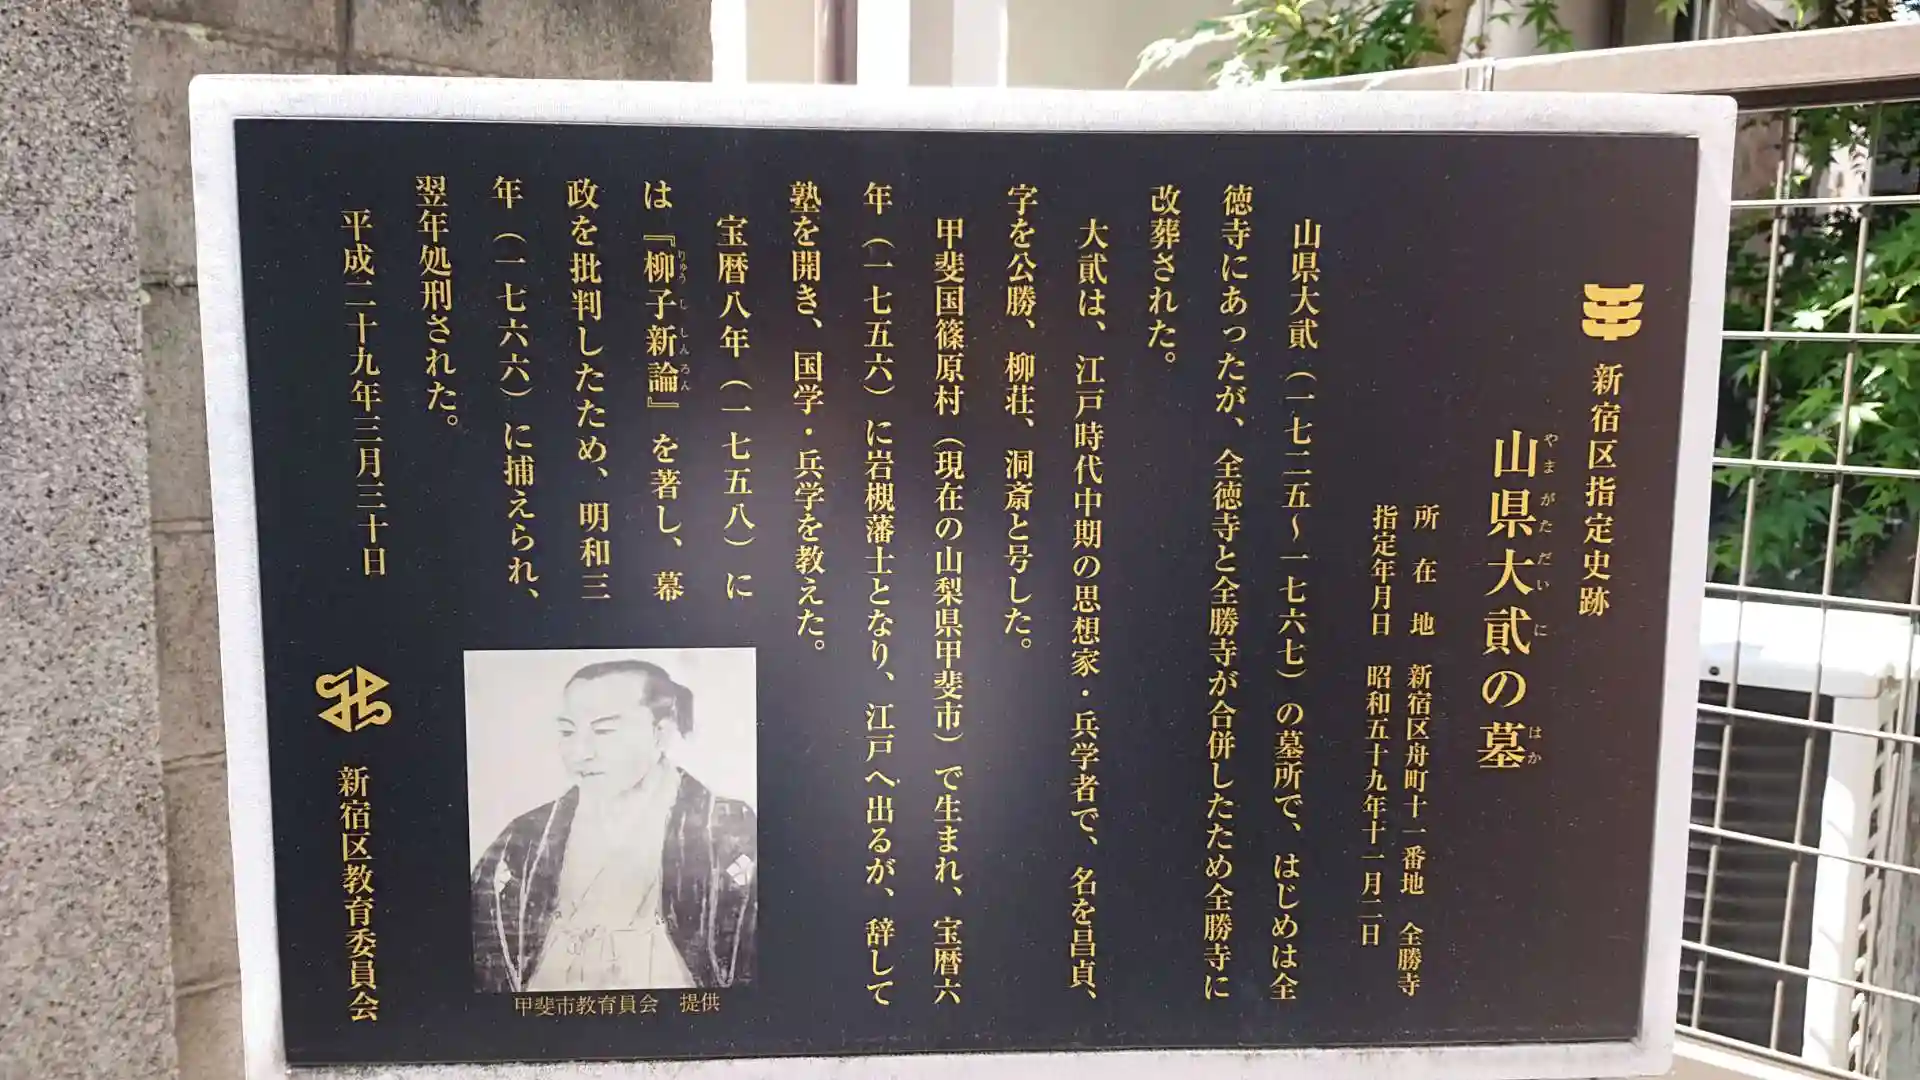 新宿区指定史跡
山県大貳の墓
やまがただいに はか
所在地 新宿区舟町十一番地 全勝寺
指定年月日 昭和五十九年十一月二日
山県大貳（一七二五～一七六七）の墓所で、はじめは全
徳寺にあったが、全徳寺と全勝寺が合併したため全勝寺に
改葬された。
大貳は、江戸時代中期の思想家・兵学者で、名を昌貞、
字を公勝、柳荘、洞斎と号した。
甲斐国篠原村（現在の山梨県甲斐市）で生まれ、宝暦六
年（一七五六）に岩槻藩士となり、江戸へ出るが、辞して
塾を開き、国学・兵学を教えた。
宝暦八年（一七五八）に
は『柳子新論』を著し、幕
りゅうししんろん
政を批判したため、明和三
年（一七六六）に捕えられ、
翌年処刑された。
平成二十九年三月三十日
新宿区教育委員会
甲斐市教育員会 提供